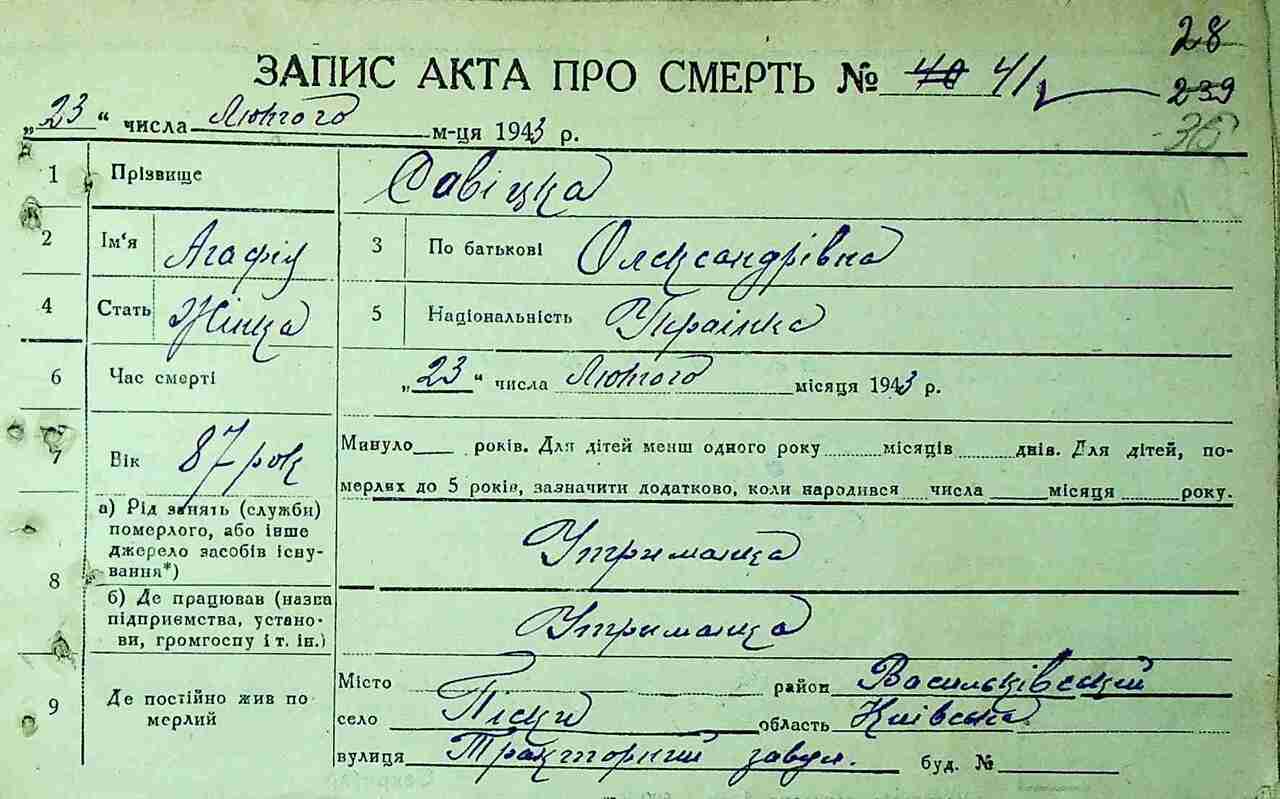 28
ЗАПИС АКТА ПРО СМЕРТЬ № 40 41
239
„23“ числа Лютого м-ця 1943 р.
35
1 Прізвище Савіцка
2 Ім‘я Агафія 3 По батькові Олександрівна
4 Стать Жінка 5 Національність Українка
6 Час смерті „23“ числа Лютого місяця 1943 р.
7 Вік 87 рок Минуло___ років. Для дітей менш одного року ........місяців ........днів. Для дітей, по-
мерлих до 5 років, зазначити додатково, коли народився ....числа ______місяця ........року.
8 а) Рід занять (служби)
померлого, або інше
джерело засобів існу-
вання*) Утриманка
б) Де працював (назва
підприємства, устано-
ви, громгоспу і т. ін.) Утриманка
9 Де постійно жив по
мерлий
Місто район Васильківський
село Піски область Київська.
вулиця Тракторний завул. буд. №